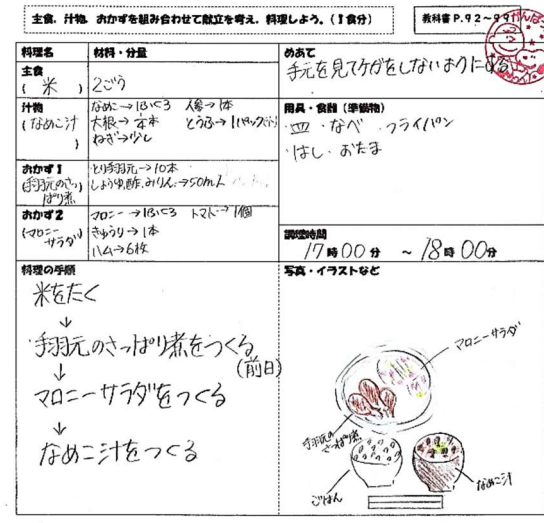 主食、汁物、おかずを組み合わせて献立を考え、料理しよう。(1食分)
教科書P.92~99
料理名 材料・分量
主食
(米) 2ごう
汁物
(なめこ汁)
なめこ→1ふくろ 人参→1本
ねぎ→少し
おかず1
(手羽元のさっぱり煮)
とり手羽元→10本
しょうゆ、酢、みりん→50mL
おかず2
(マロニーサラダ)
マロニー→1ふくろ トマト→1個
きゅうり→1本
ハム→6枚
めあて
手元を見てケガをしないようにする。
用具・食器(準備物)
皿・なべ・フライパン
・はし・おたま
調理時間
17時00分 ~ 18時00分
料理の手順
米をたく
↓
手羽元のさっぱり煮をつくる
(前日)
↓
マロニーサラダをつくる
↓
なめこ汁をつくる
写真・イラストなど
マロニーサラダ
手羽元の
さっぱり煮
ごはん
なめこ汁